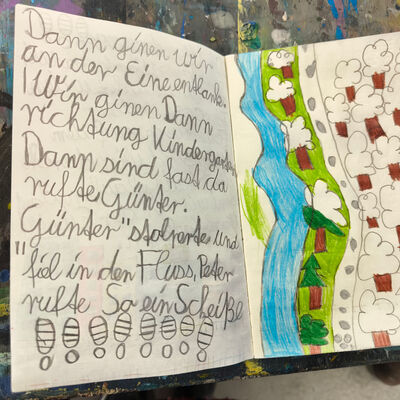 Dann ginen wir
an der Eine entlank.
Wir ginen Dann
richtung Kindergarten
Dann sind fast da
rufte Günter.
Günter "stolperte und
"fiel in den Fluss, Peter
rufte So ein Scheiße